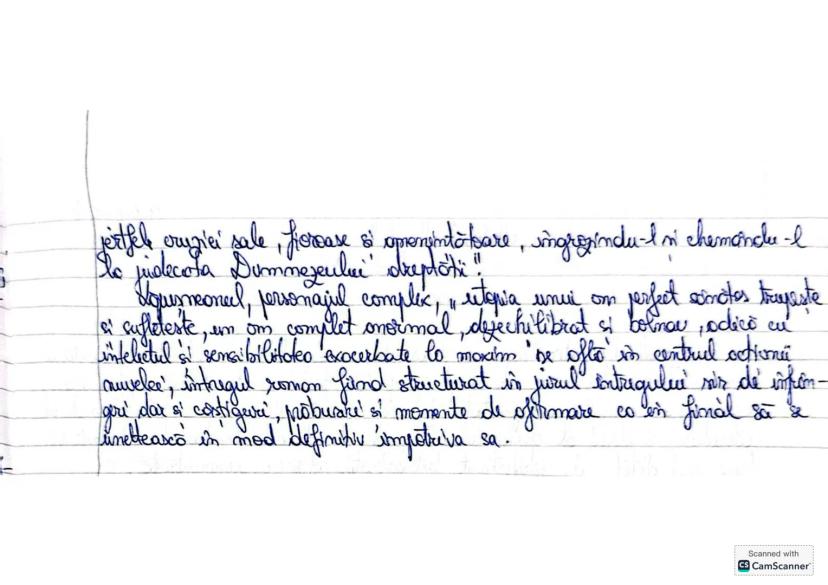 jertfele cruziei sale, fioroase si amenințătoare, îngrozindu-l si chemându-l
la judecata Dumnezeului dreptății".
Lăpușneanul, personajul complex, „utopia unui om perfect sănătos trupește
si sufletește, un om complet anormal, dezechilibrat si bolnav, adică cu
intelectul si sensibilitatea exacerbate la maxim" se află in centrul acțiunii
nuvelei, întregul roman fiind structurat in jurul întregului sir de înfrân-
geri dar si câștiguri, prăbusiri si momente de afirmare ca in final să se
uneltească in mod definitiv împotriva sa.
Scanned with
CS CamScanner